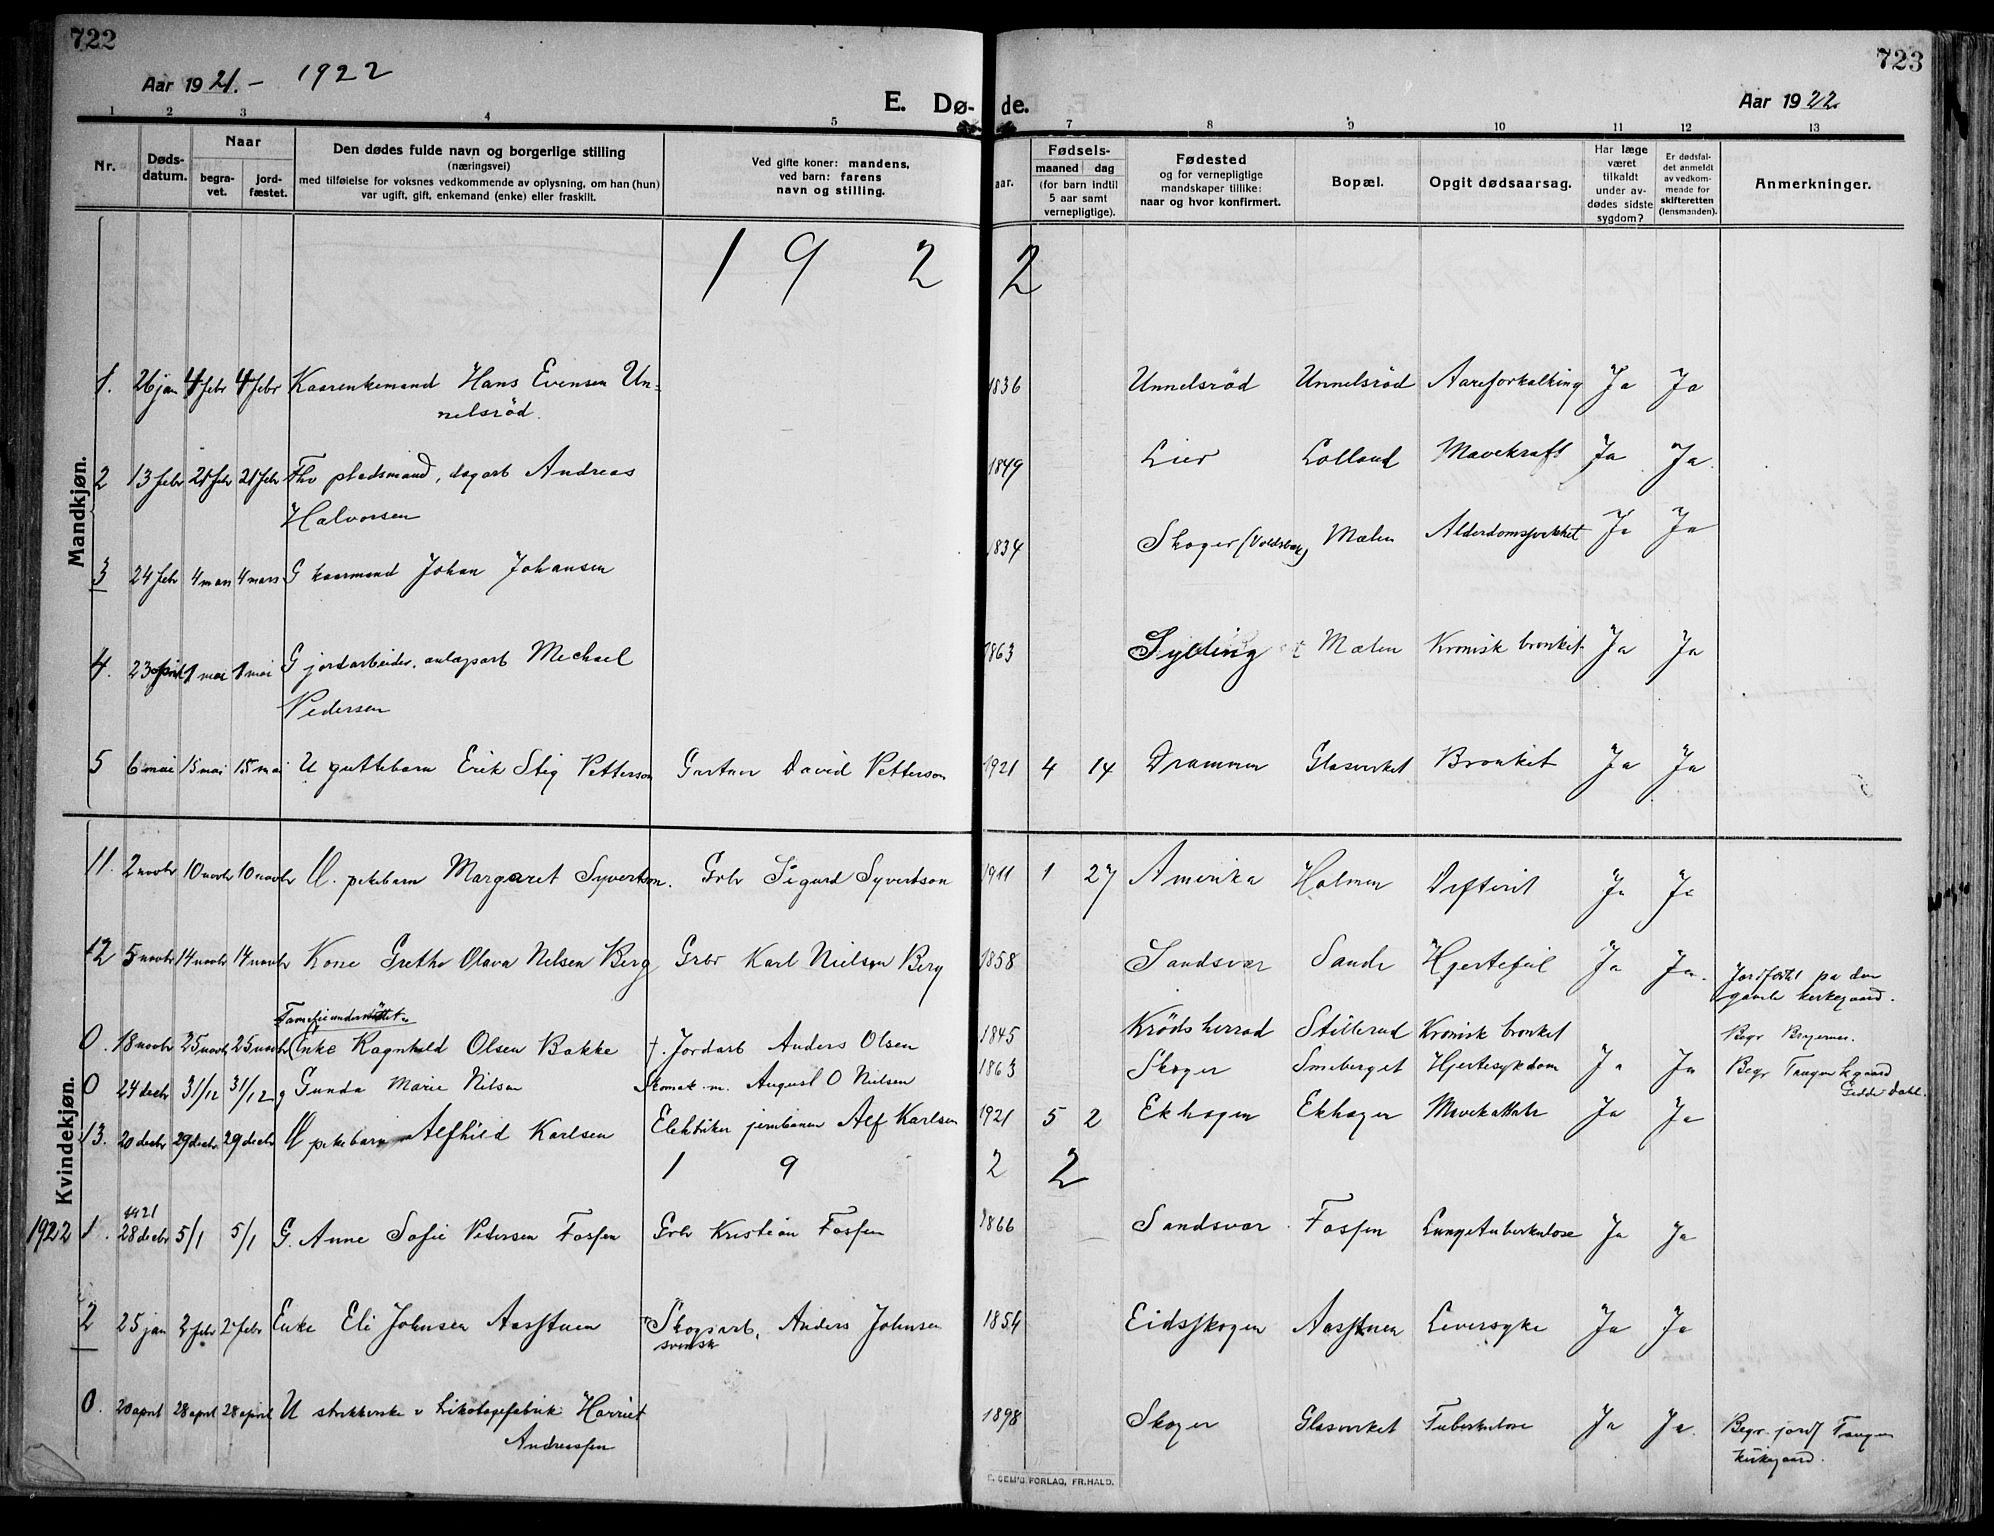 722
723
Aar 1921. - 1922
E. Dø- de.
Aar 1922.
1 2 3 4 5 7 8 9 10 11 12 13
Nr.
Døds-
datum.
Naar
begra-
vet.
jord-
fæstet.
Den dødes fulde navn og borgerlige stilling
(næringsvei)
med tilføielse for voksnes vedkommende av oplysning, om han (hun)
var ugift, gift, enkemand (enke) eller fraskilt.
Ved gifte koner: mandens,
ved barn: farens
navn og stilling.
aar.
Fødsels-
maaned dag
(for barn indtil
5 aar samt
vernepligtige).
Fødested
og for vernepligtige
mandskaper tillike:
naar og hvor konfirmert.
Bopæl.
Opgit dødsaarsag.
Har læge
været
tilkaldt
under av-
dødes sidste
sygdom?
Er dødsfal-
det anmeldt
av vedkom-
mende for
skifteretten
(lensmanden).
Anmerkninger.
1 9 2 2
Mandkjøn.
1. 26 jan 4 febr 4 febr Kaarenkemand Hans Evensen Un- 1836 Unnelsrød Unnelsrød Aareforkalking Ja Ja
nelsrød.
2 13 febr 21 febr 21 febr Fhv pladsmand, dagarb Andreas 1849 Lier Lolland Mavekræft Ja Ja.
Halvorsen
3 24 febr 4 mars 4 mars G kaarmand Johan Johansen 1834 Skoger Mælen Ja Ja
4. 23 april 1 mai 1 mai G jordarbeider, anlægsarb Michael 1863 Sylling Mælen Kronisk bronkit Ja Ja
Pedersen
5 6 mai 15 mai 15 mai U guttebarn Erik Stig Petterson Gartner David Petterson 1921 4 14 Drammen Glasverket Bronkit Ja Ja
Kvindekjøn.
11. 2 novbr 10 novbr 10 novbr U. pikebarn Margaret Syvertson. Grbr Sigurd Syvertson 1911 1 27 Amerika Holmen Difterit Ja Ja
12 5 novbr 14 novbr 14 novbr Kone Grethe Olava Nilsen Berg Grbr Karl Nielsen Berg 1858 Sandsvær Sande Hjertefeil Ja Ja. Jordfæstet pa den
gamle kirkegaard.
0. 18 novbr 25 novbr 25 novbr Enke Ragnhild Olsen Bakke †. Jordarb Anders Olsen 1845 Krødsherrad Stillerud Kronisk bronkit Begr Bragernes.
0 24 decbr 31/12 31/12 g Gunda Marie Nilsen Skomak.m. August O Nielsen 1863 Skoger Smeberget Hjertesykdom Ja Ja Begr Tangen kgaard
13. 20 decbr 29 decbr 29 decbr U pikebarn Alfhild Karlsen Elektriker Alf Karlsen 1921 5 2 Ekhagen Ekhagen Ja Ja
1 9 2 2
1921
1922 1. 28 decbr 5/1 5/1 G. Anne Sofie Petersen Fossen Grbr Kristian Fossen 1866 Sandsvær Fossen Lungetuberkulose Ja Ja
2 25 jan 2 febr 2 febr Enke Eli Johnsen Aasstuen Skogsarb, Anders Johnsen 1854 Eidsskogen Aasstuen Leversyke Ja Ja
svensk
0. 20 april 28 april 28 april U strikkerske v trikotagefabrik Harriet 1898 Skoger Glasverket Tuberkulose Ja Ja. Begr. jordf Tangen
Andreassen kirkegaard.
GEM'S FORLAG, FR. HALD.